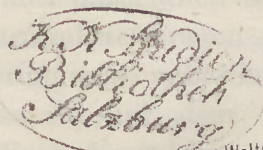 K K Studien
Bibliothek
Salzburg